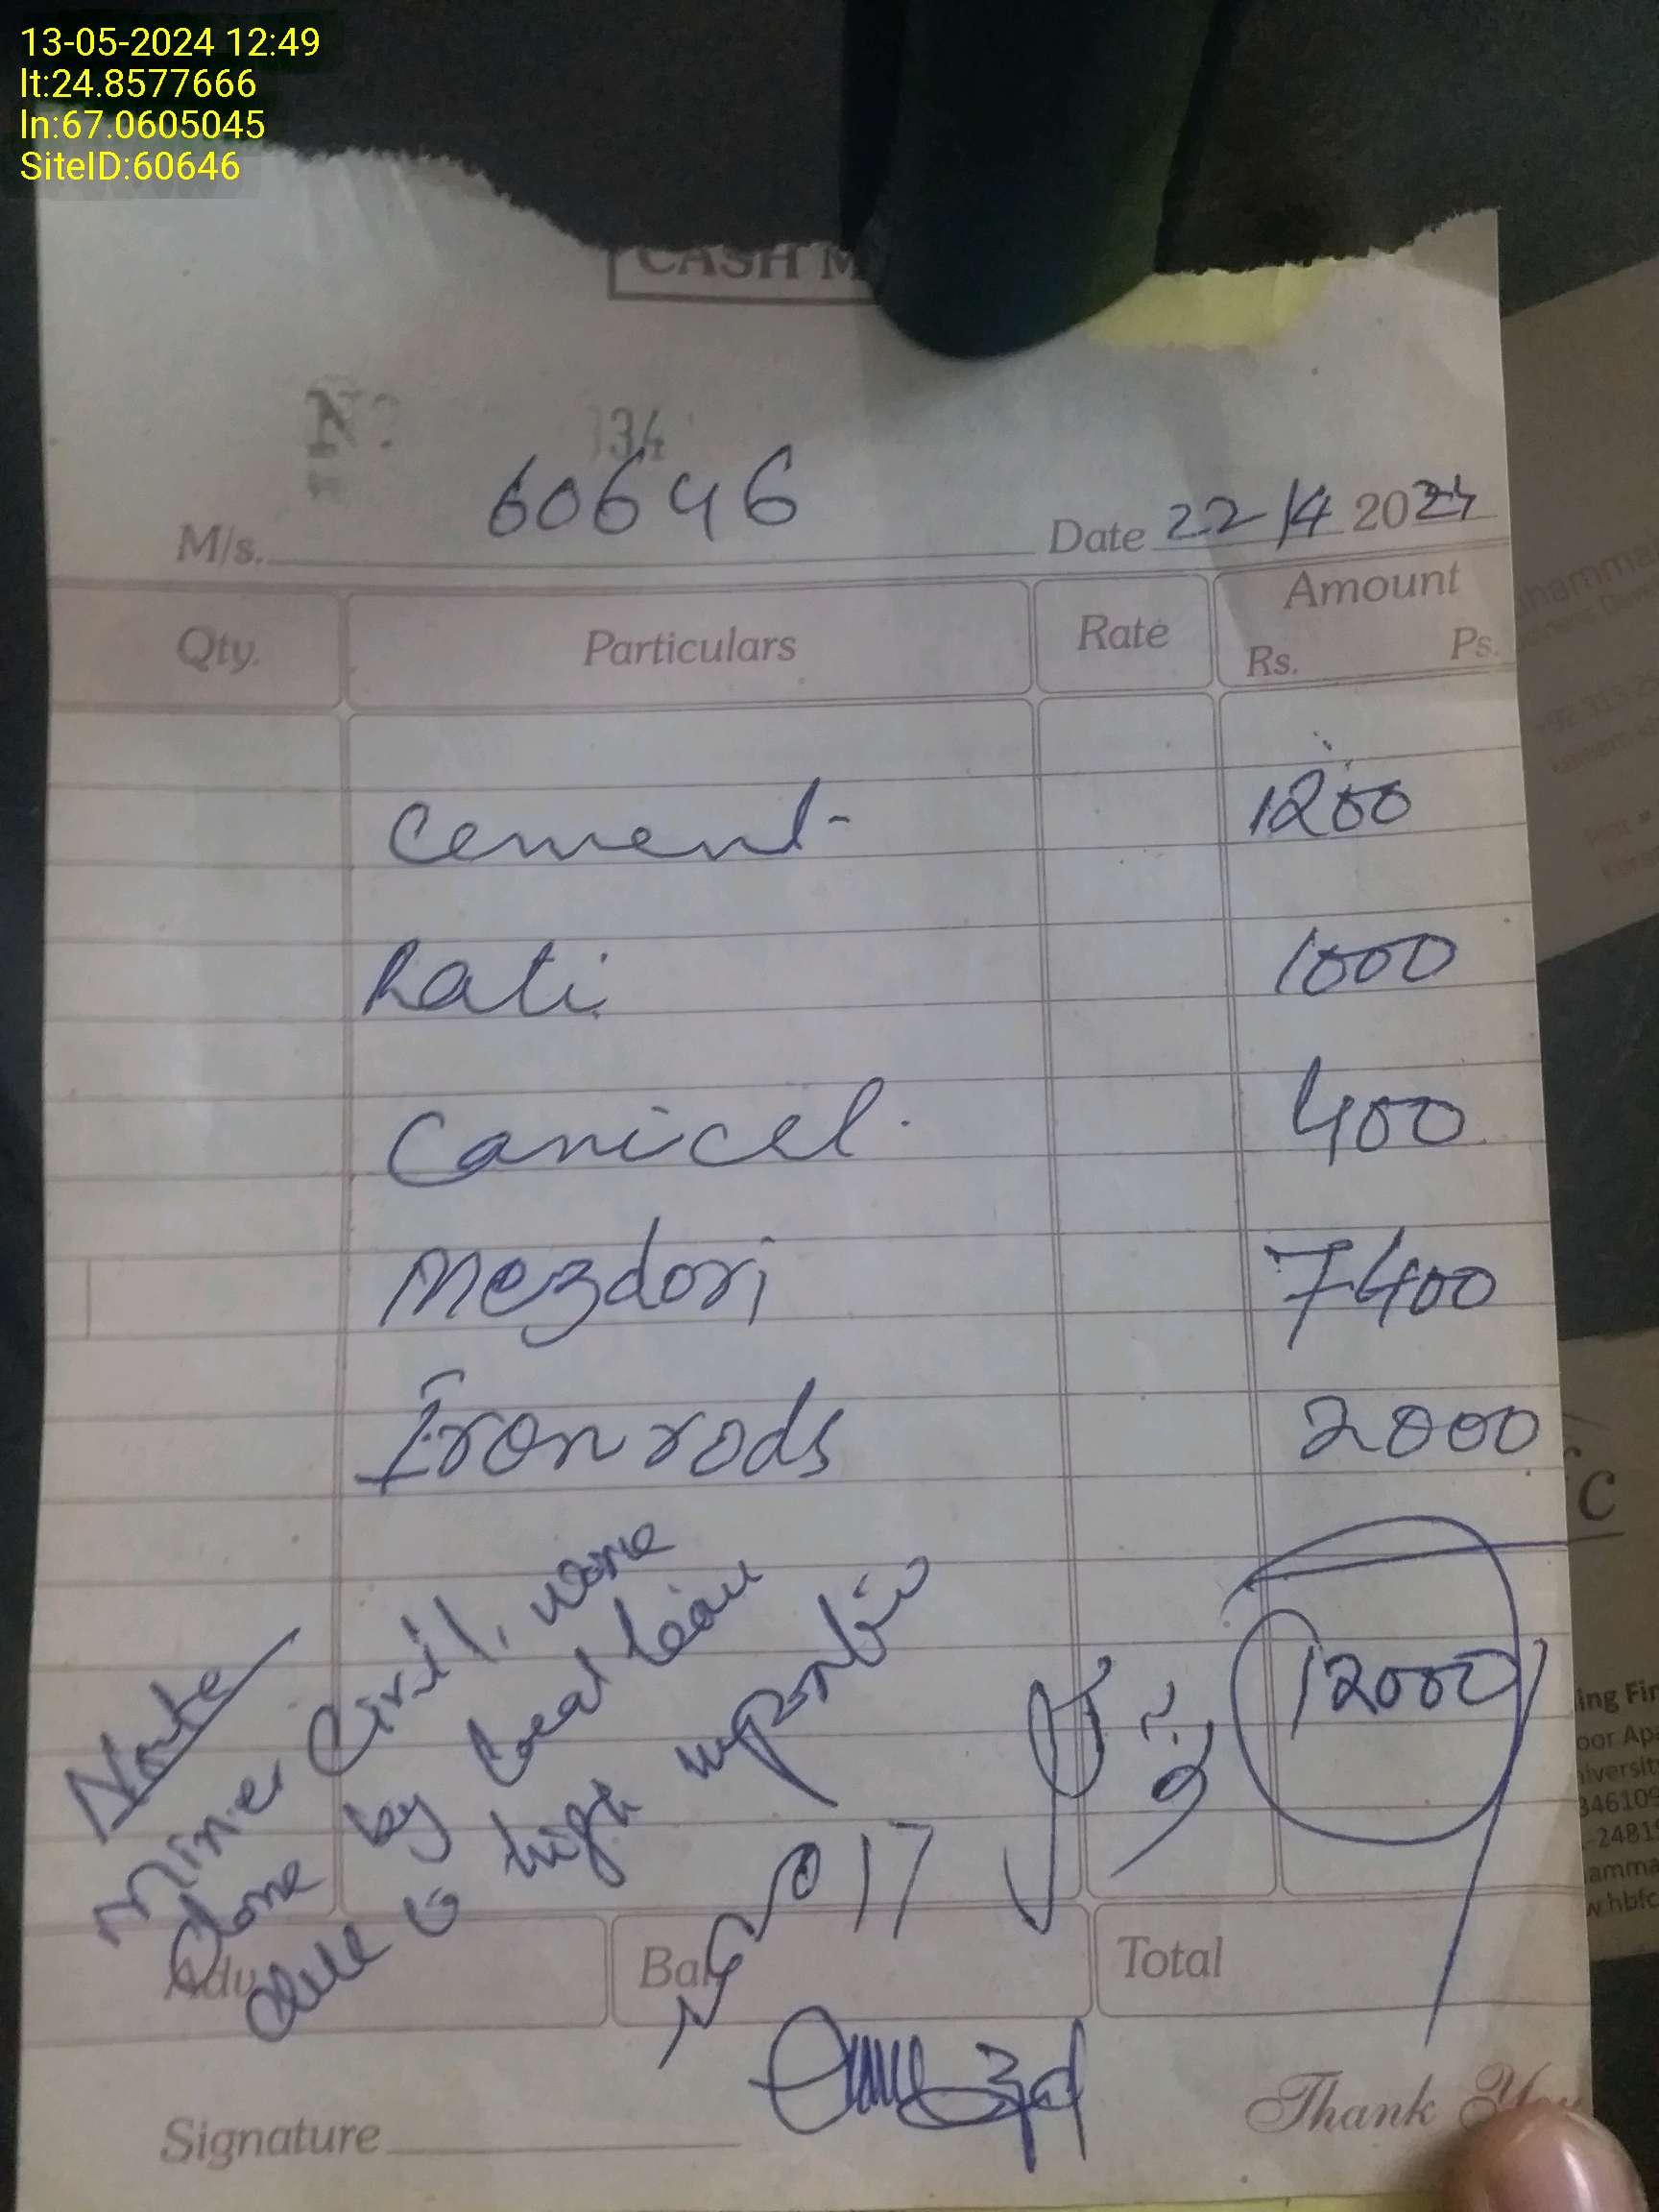 13-05-2024 12:49
lt:24.8577666
ln:67.0605045
SiteID:60646
CASH M
No 134
M/s. 60646 Date 22/4 2024
Qty. Particulars Rate Amount
Rs. Ps.
Cement- 1200
Rati 1000
Canicel. 400
Mezdori 7400
Iron rods 2000
12000
Note
Miner Civil, work
done by local team
due to high
17
Adv. Bal. Total
Signature
Thank You
C
ing Fin
oor Apa
iversit
346109
-2481
amma
w.hbfc